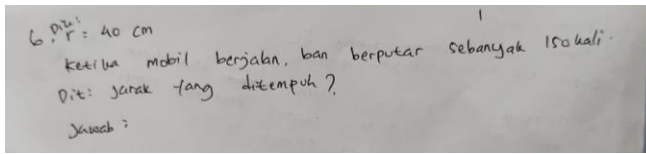 6. Dik: r = 40 cm
Ketika mobil berjalan, ban berputar sebanyak 150 kali.
Dit: Jarak yang ditempuh?
Jawab: